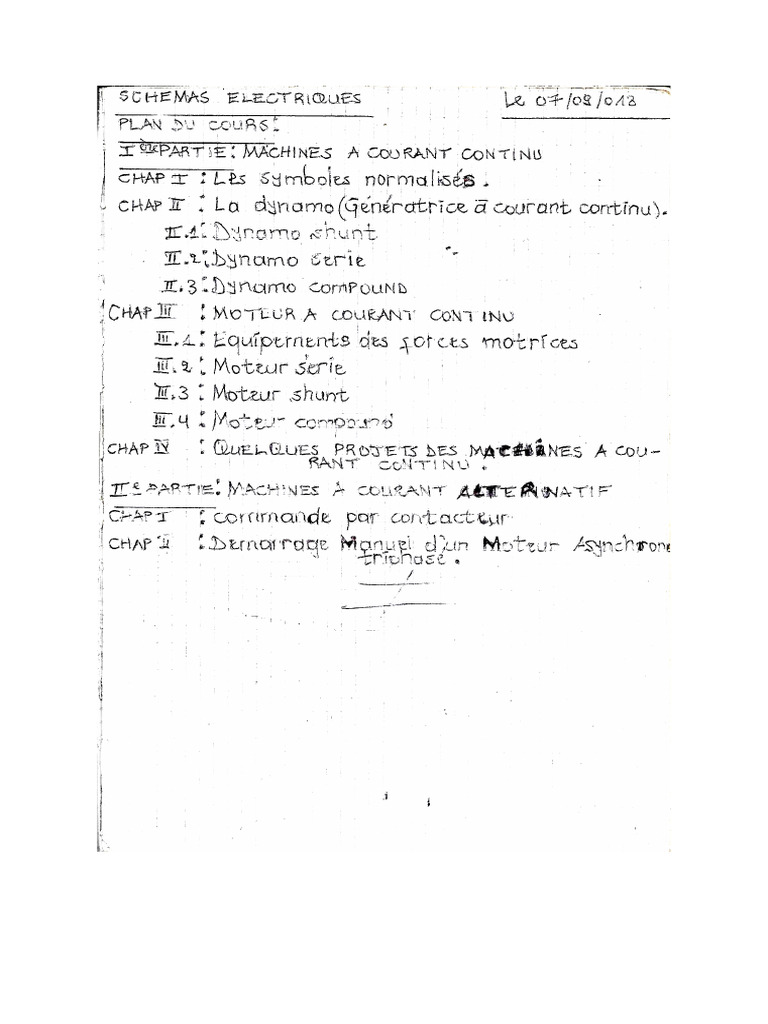 SCHEMAS ELECTRIQUES Le 07/09/013
PLAN DU COURS:
Iere PARTIE: MACHINES A COURANT CONTINU
CHAP I : Les symboles normalisés.
CHAP II : La dynamo (Génératrice à courant continu).
II.1: Dynamo shunt
II.2: Dynamo serie
II.3: Dynamo COMPOUND
CHAP III : MOTEUR A COURANT CONTINU
III.1: Equipements des forces motrices
III.2: Moteur série
III.3: Moteur shunt
III.4: Moteur compound
CHAP IV : QUELQUES PROJETS DES MACHINES A COU-
RANT CONTINU.
IIe PARTIE: MACHINES A COURANT ALTERNATIF
CHAP I : commande par contacteur
CHAP II : Demarrage Manuel d'un Moteur Asynchrone
triphasé.